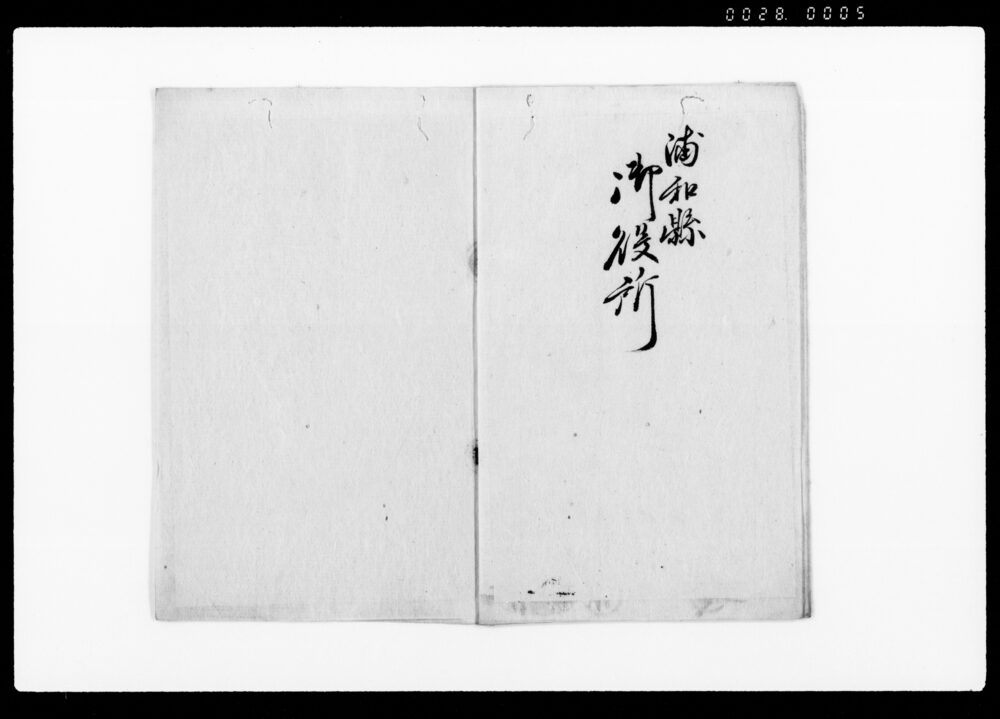 0028. 0005
浦和縣
御役所